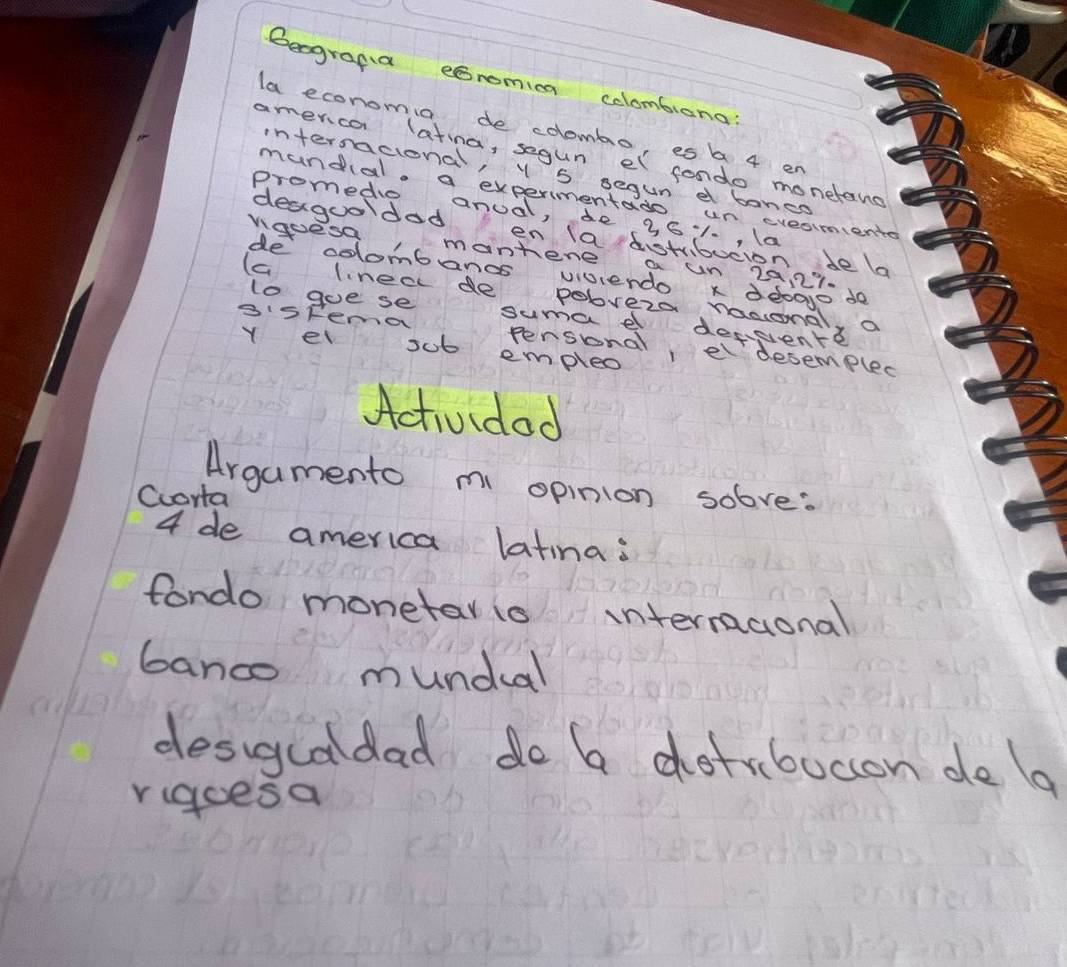 Geografia economica colombiana:
la economia de colombia, es la 4 en
america latina, segun el fondo monetario
internacional, y 5 segun el banco
mundial. a experimentado un cresimiento
promedio anual, de 26%, la
desigualdad en la distribucion de la
riquesa mantiene a un 29,2%
de colombianos visiendo x debajo de
la linea de pobreza nacional, a
lo que se suma el desfvente
sistema pensional, el desempleo
y el sub empleo
Actividad
Argumento mi opinion sobre:
cuarta
4 de america latina:
fondo monetario internacional
banco mundial
desigualdad de la distribucion de la
riquesa